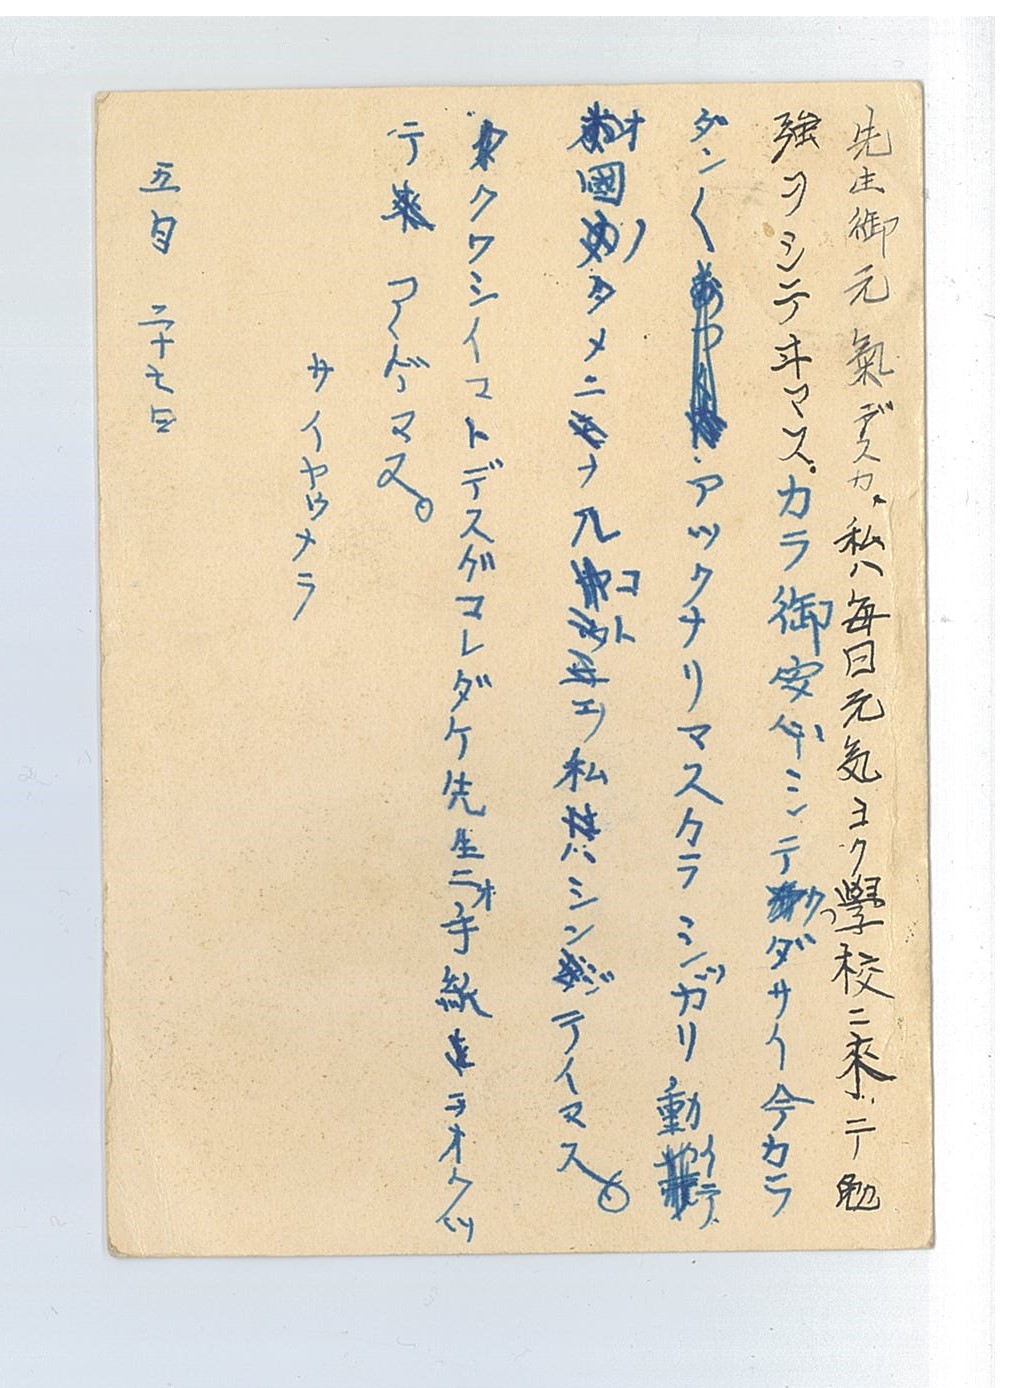 先生御元氣デスカ。私ハ毎日元気ヨク學校ニ來テ勉
強ヲシテヰマス。カラ御安心シテクダサイ今カラ
ダン〱アツクナリマスカラシッカリ動イテ
オ國ノタメニナルコト 私ハシンジテイマス。
クワシイコトデスガコレダケ先生ニオ手紙ヲオクッ
テアゲマス。
サイヤウナラ
五月二十七日